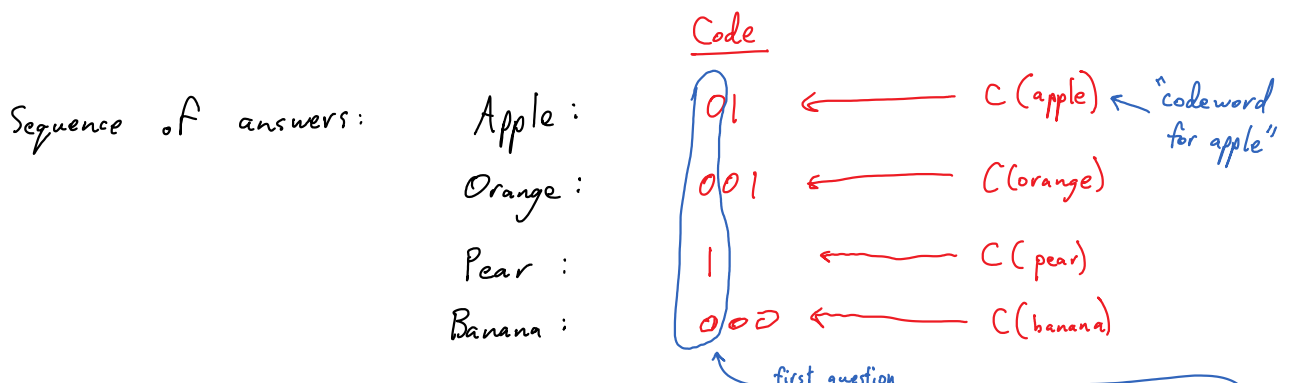 Code
Sequence of answers: Apple: 01 C(apple) "codeword for apple"
Orange: 001 C(orange)
Pear: 1 C(pear)
Banana: 000 C(banana)
first question